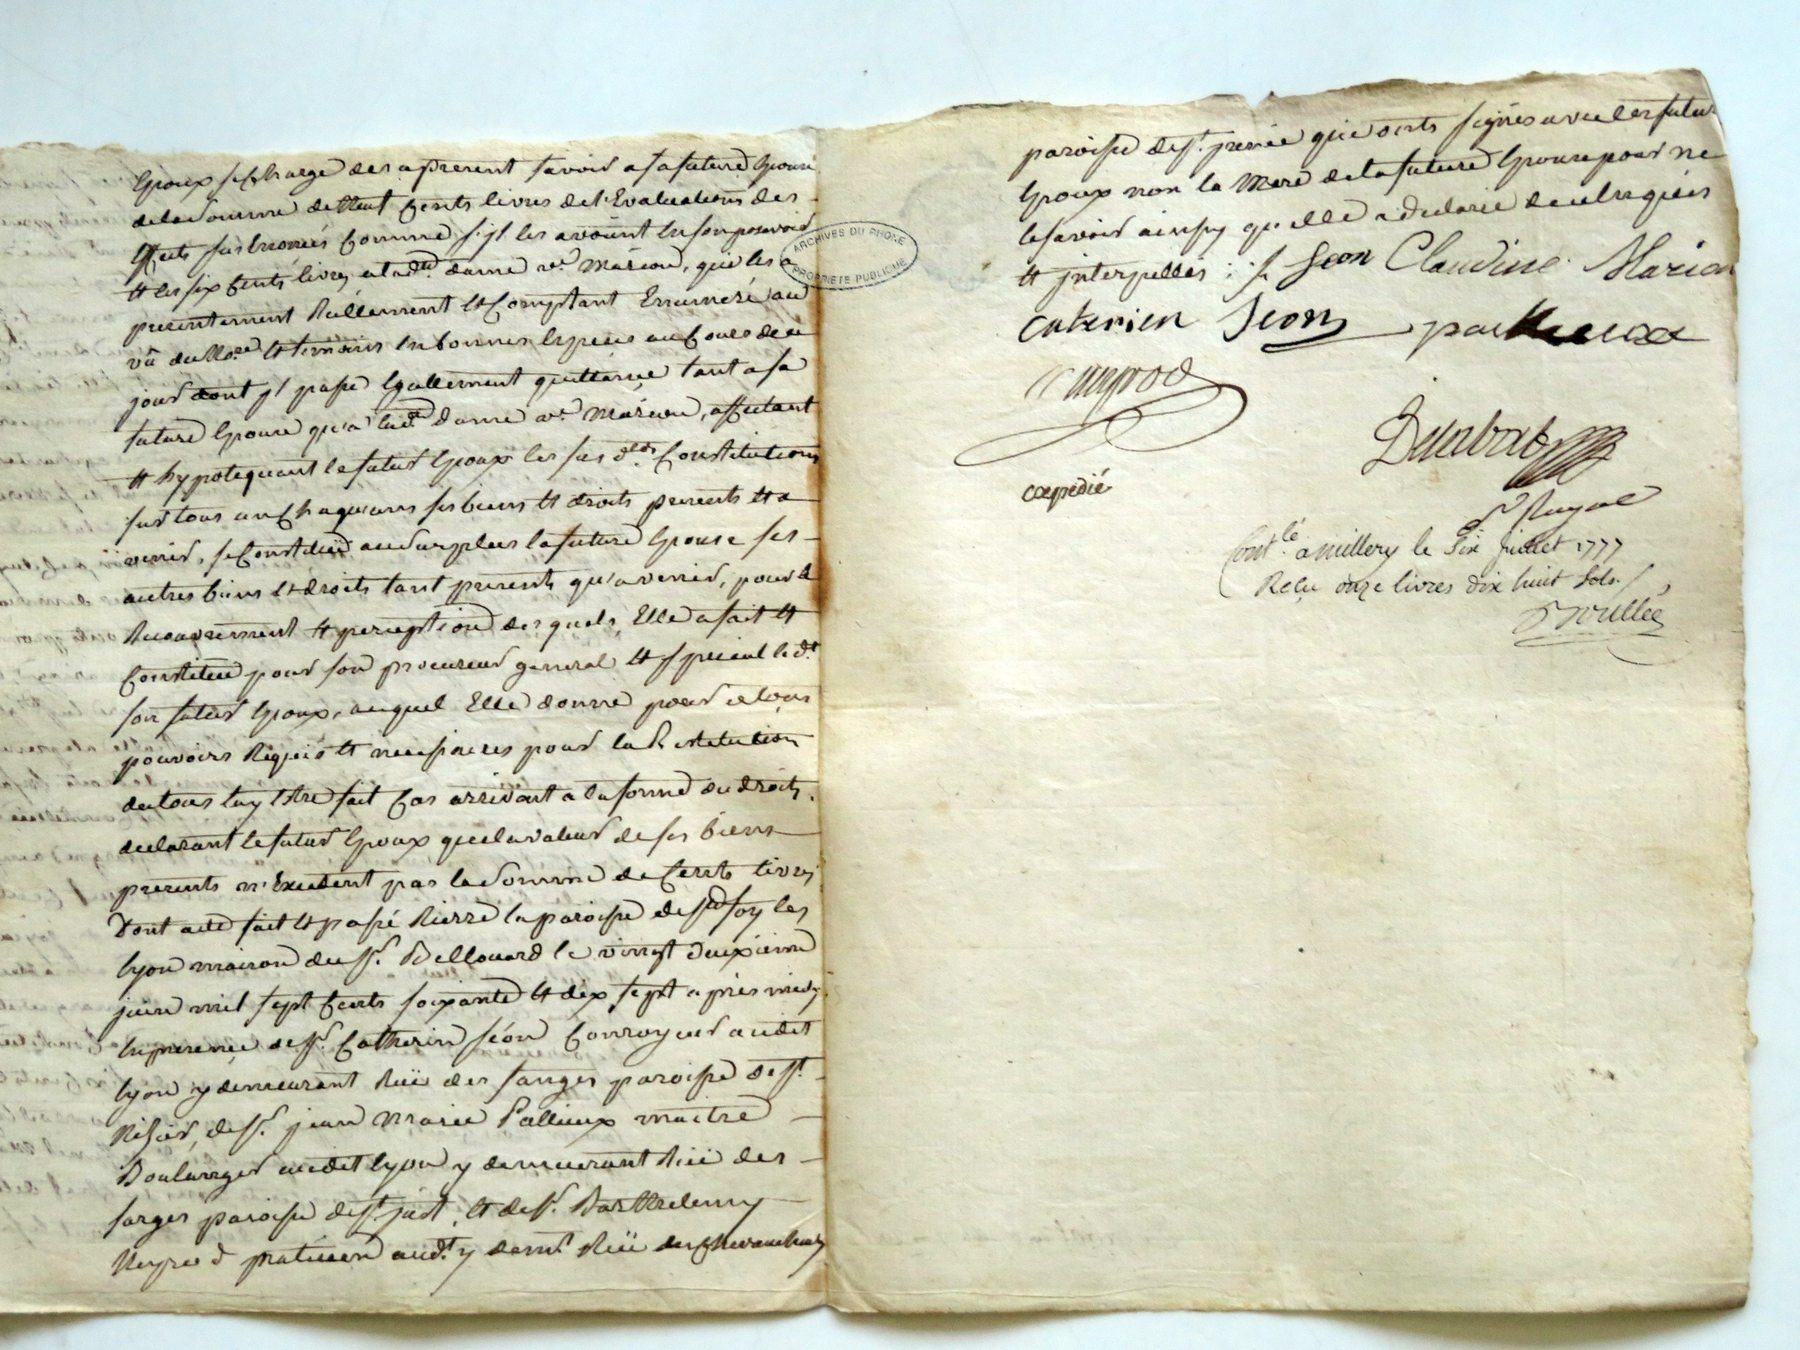 Epoux se Charge des apresent savoir a sa future Epouse
de la Somme de huit Cents livres de l'Evaluation des
Effets sus Enoncés Comme s'il les avoient En son pouvoir
et les six Cents livres a lad.e dame v.e Marion, qui les a
presentement Reëllement et Comptant Ennuméré au
vû du No.re et temoins En bonnes Especes au Cours de ce
jour dont jl passe Egallement quittance tant a sa
future Epouse qu'a lad.e dame v.e Marion, affectant
et hypotequant le futur Epoux les sus d.tes Constitutions
sur tous un Chaquuns ses biens et droits presents et a
venir, se Constitue au surplus la future Epouse ses
autres biens et droits tant presents qu'a venir, pour le
Recouvrement et perception des quels, Elle a fait et
Constitué pour son procureur general et special led.t
son futur Epoux, auquel Elle donne pour ce tous
pouvoirs Requis et necessaires pour la Restitution
du tous luy Etre fait Cas arrivant a la forme du droit,
declarant le futur Epoux que la valeur de ses biens
presents n'Excedent pas la Somme de Cents livres
Dont acte fait et passé Rierre la paroisse de S.te foy les
lyon maison du S.r Bellouard le vingt deuxieme
juin mil sept Cents soixante et dix sept apres midy
En presence de S.r Catherin séon Conroyeur audit
lyon y demeurant Ruë des fanges paroisse de S.t
Nizier, de S.r jean Marie Pallieux maitre
Boulanger audit lyon y demeurant Ruë des
farges paroisse de S.t just, et de S.r Barthelemy
Neyrod praticien aud.t y dem.t Ruë des Chevaucheurs
ARCHIVES DU RHONE
PROPRIETE PUBLIQUE
paroisse de S.t jrenée qui onts signés avec les futur
Epoux non la Mere de la future Epouse pour ne
le savoir ainsy qu'elle a declaré de ce Enquis
et jnterpellés :
Seon Claudine Marion
caterien Seon
Neyrod
Delabort
expedié
Royal
Cont.lé a millery le Six juillet 1777
Reçu onze livres dix huit Sols